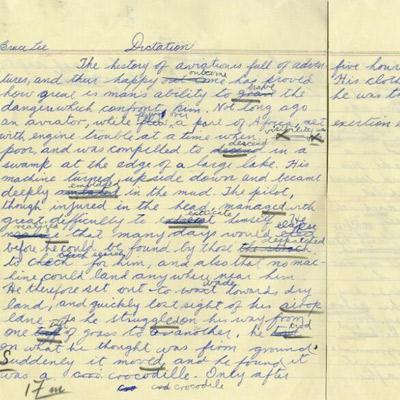 Bruce Lee Dictation
The history of aviration is full of adven- five hour
tures, and thur happy outcome has proved His cloth
how great is man's ability to brave the he was t
dangers which confront him. Not long ago
an aviator, while flying over part of Africa, met exertion
with engine trouble at a time when visibility was
poor, and was compelled to descend in a
swamp at the edge of a large lake. His
machine turned upside down and became
deeply embedded in the mud. The pilot,
though injured in the head, managed with
great difficulty to extricate himself. He
realized that many days would elapse
before he could be found by those
to check for him, and also that no mac-
hine could land any where near him.
He therefore set out to wade towards dry
land, and quickly lost sight of his airop
lane as he struggled on his way from
one of grass to another, he trod
on what he thought was firm ground.
Suddenly it moved and he found it
was a crocodille. Only after
17 m crocodile